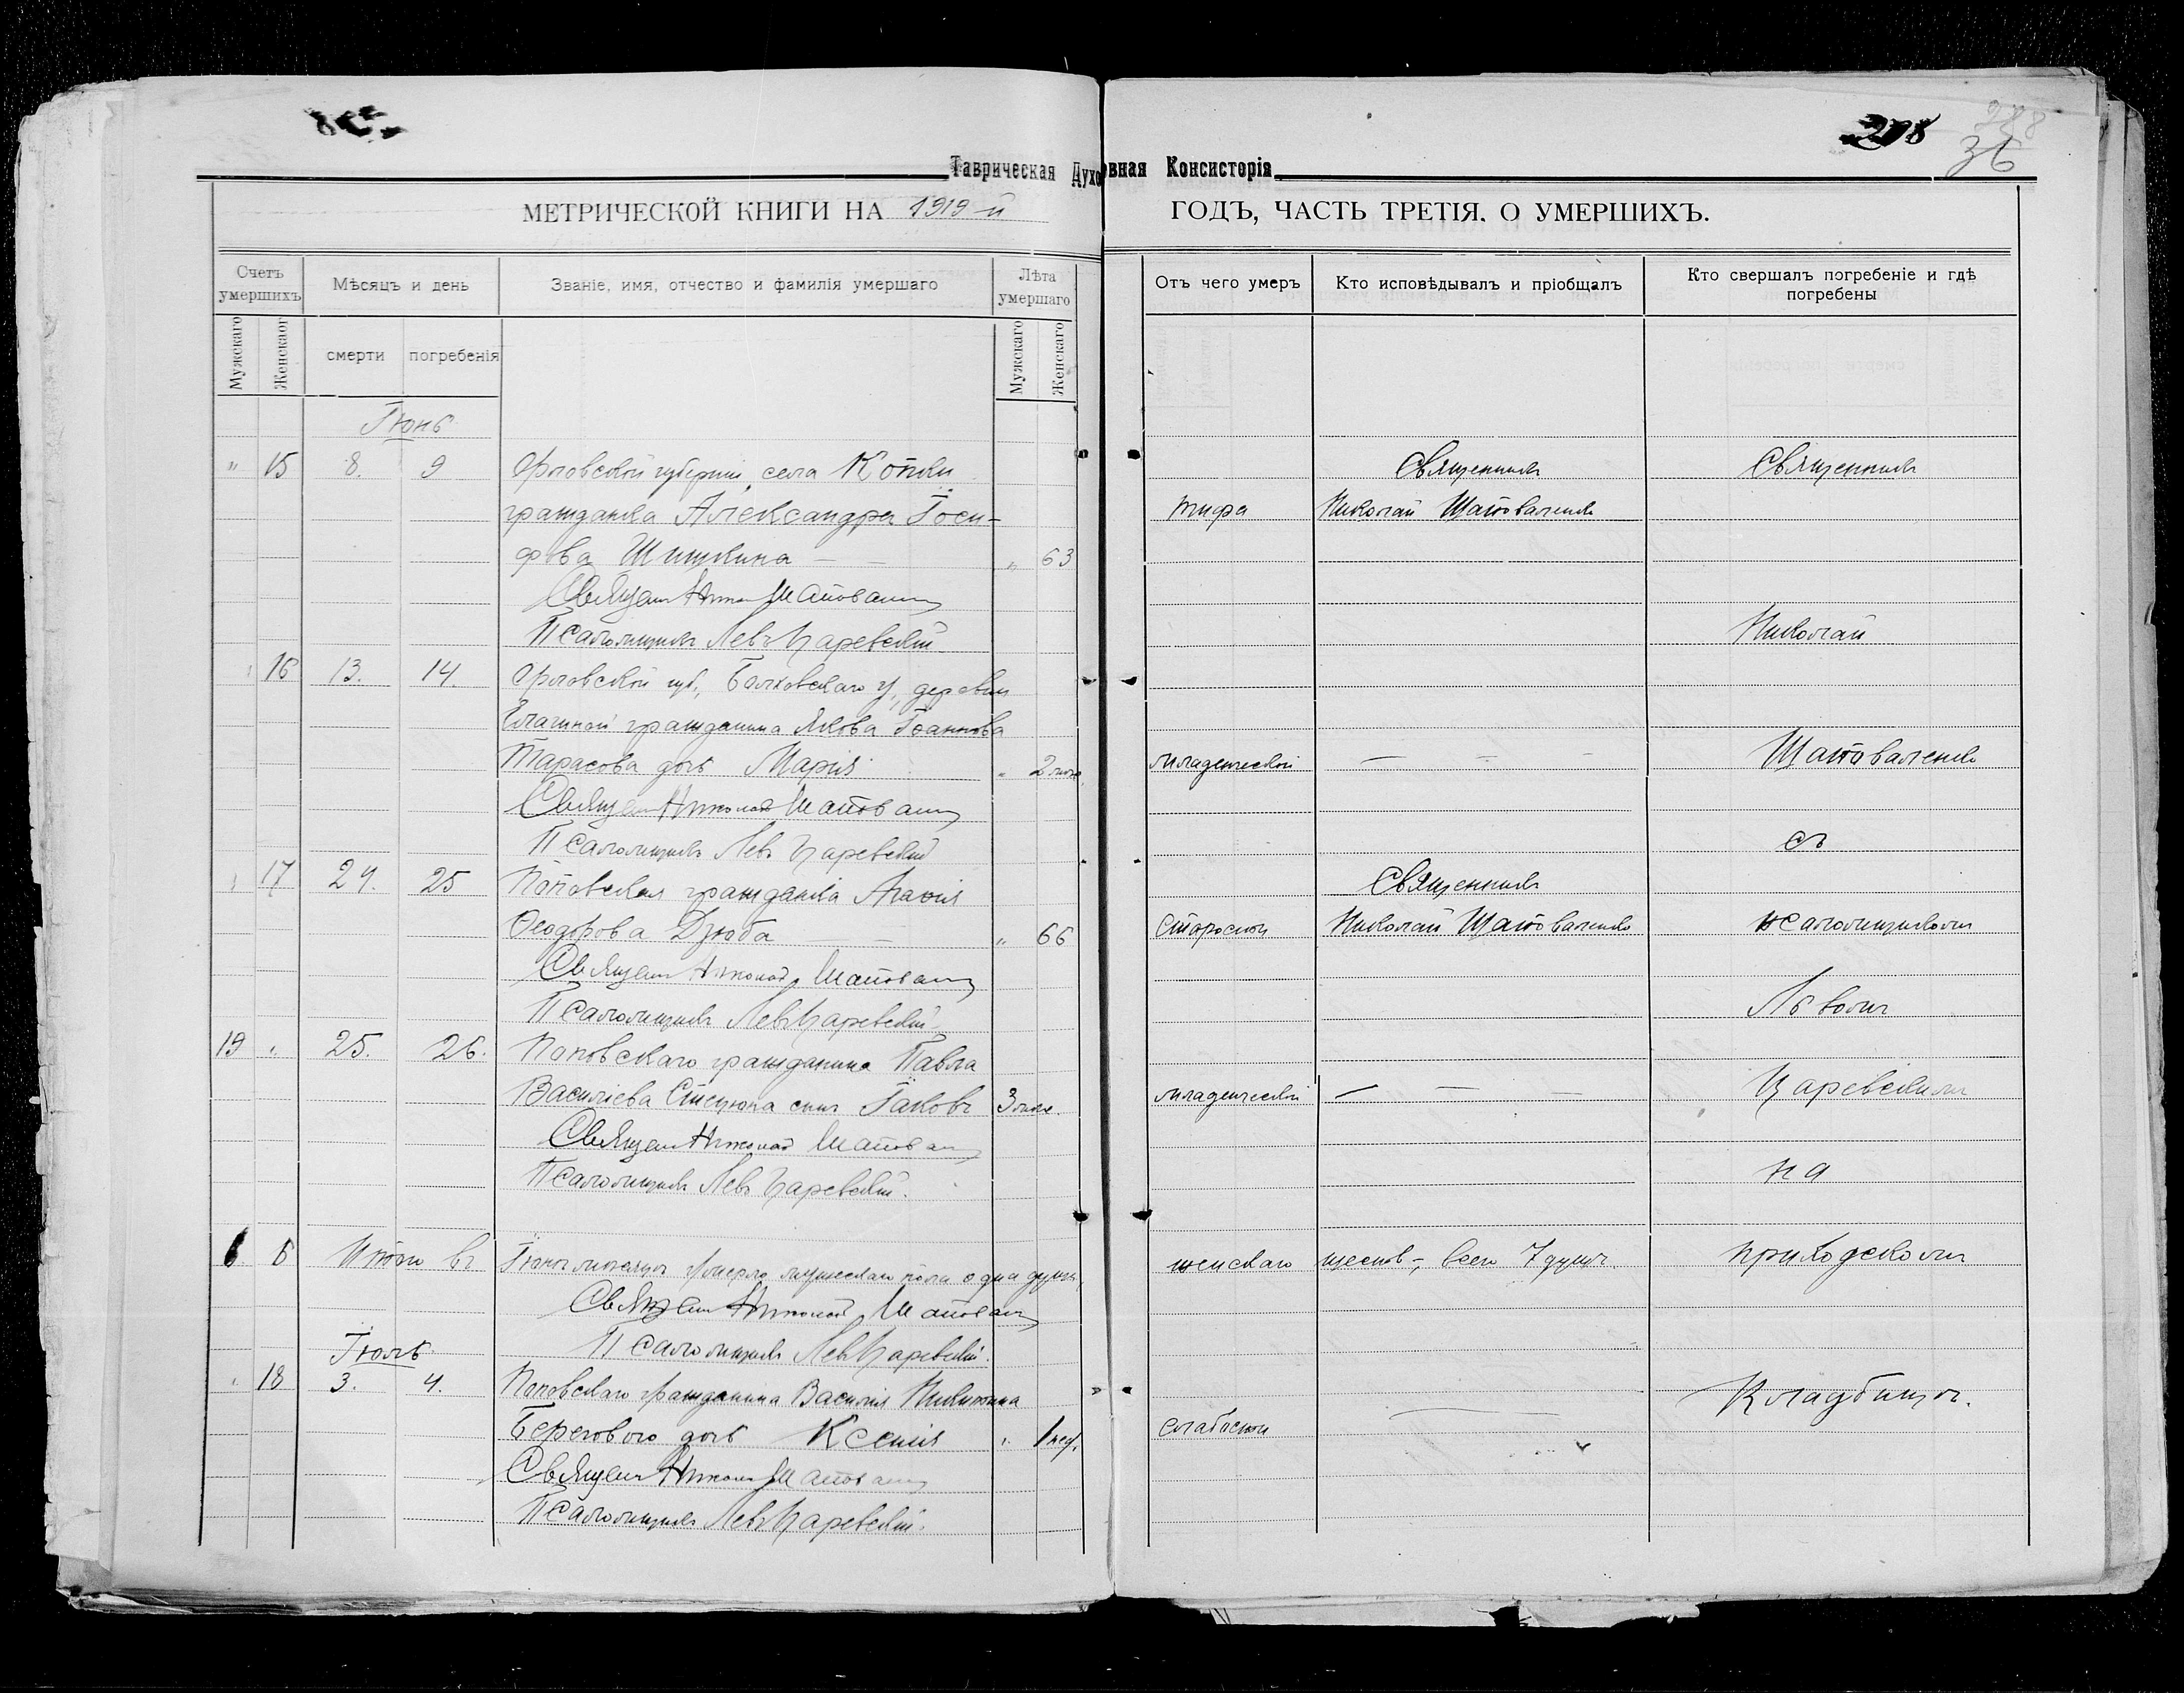 Таврическая Духовная Консисторія
288
36
МЕТРИЧЕСКОЙ КНИГИ НА 1919-й ГОДЪ, ЧАСТЬ ТРЕТІЯ. О УМЕРШИХЪ.
Счетъ умершихъ
Мѣсяцъ и день
Званіе, имя, отчество и фамилія умершаго
Лѣта умершаго
Отъ чего умеръ
Кто исповѣдывалъ и пріобщалъ
Кто свершалъ погребеніе и гдѣ погребены
Мужскаго
Женскаго
смерти
погребенія
Мужскаго
Женскаго
Іюнь
" 15 8. 9 Орловской губерніи, села
гражданка Александра Іоси-
фова Шишкина — — " 63
Священ Николай Шаповал
Псаломщикъ Левъ Царевскій
тифа
Священникъ
Николай Шаповаленко
" 16 13. 14. Орловской губ., Болховскаго у, деревни
гражданина Якова Іоаннова
Тарасова дочь Марія " 2 мѣс
Священ Николай Шаповал
Псаломщикъ Левъ Царевскій
младенческой — — —
" 17 24. 25 Поповская гражданка Агафія
Ѳеодорова Дзюба — " 66
Священ Николай Шаповал
Псаломщикъ Левъ Царевскій
старости
Священникъ
Николай Шаповаленко
19 " 25. 26. Поповскаго гражданина Павла
Василіева Стецюка сынъ Іаковъ 3 мѣс.
Священ Николай Шаповал
Псаломщикъ Левъ Царевскій.
младенческой — — —
6 Итого въ Іюнѣ мѣсяцѣ умерло мужескаго пола одна душа,
женскаго шесть, всего 7 душъ.
Священ Николай Шаповал
Псаломщикъ Левъ Царевскій.
Іюль
" 18 3. 4. Поповскаго гражданина Василія Никитина
Берегового дочь Ксенія " 1 нед.
Священ Николай Шаповал
Псаломщикъ Левъ Царевскій.
слабости —
Священникъ
Николай
Шаповаленко
съ
псаломщикомъ
Львомъ
Царевскимъ
на
приходскомъ
кладбищѣ.